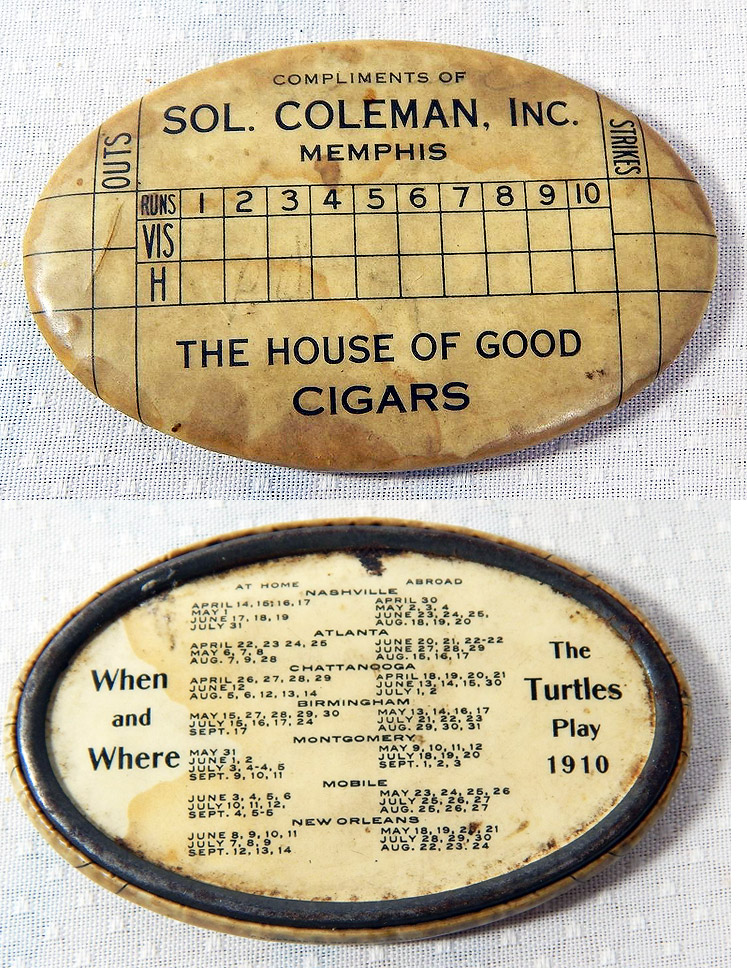 COMPLIMENTS OF
SOL. COLEMAN, INC.
MEMPHIS
OUTS
STRIKES
RUNS 1 2 3 4 5 6 7 8 9 10
VIS
H
THE HOUSE OF GOOD
CIGARS
When
and
Where
AT HOME ABROAD
NASHVILLE
APRIL 14, 15, 16, 17 APRIL 30
MAY 1 MAY 2, 3, 4
JUNE 17, 18, 19 JUNE 23, 24, 25,
JULY 31 AUG. 18, 19, 20
ATLANTA
APRIL 22, 23 24, 25 JUNE 20, 21, 22-22
MAY 6, 7, 8 JUNE 27, 28, 29
AUG. 7, 9, 28 AUG. 15, 16, 17
CHATTANOOGA
APRIL 26, 27, 28, 29 APRIL 18, 19, 20, 21
JUNE 12 JUNE 13, 14, 15, 30
AUG. 5, 6, 12, 13, 14 JULY 1, 2
BIRMINGHAM
MAY 15, 27, 28, 29, 30 MAY 13, 14, 16, 17
JULY 15, 16, 17, 24 JULY 21, 22, 23
SEPT. 17 AUG. 29, 30, 31
MONTGOMERY
MAY 31 MAY 9, 10, 11, 12
JUNE 1, 2 JULY 18, 19, 20
JULY 3, 4-4, 5 SEPT. 1, 2, 3
SEPT. 9, 10, 11
MOBILE
JUNE 3, 4, 5, 6 MAY 23, 24, 25, 26
JULY 10, 11, 12, JULY 25, 26, 27
SEPT. 4, 5-5 AUG. 25, 26, 27
NEW ORLEANS
JUNE 8, 9, 10, 11 MAY 18, 19, 20, 21
JULY 7, 8, 9 JULY 28, 29, 30
SEPT. 12, 13, 14 AUG. 22, 23. 24
The
Turtles
Play
1910